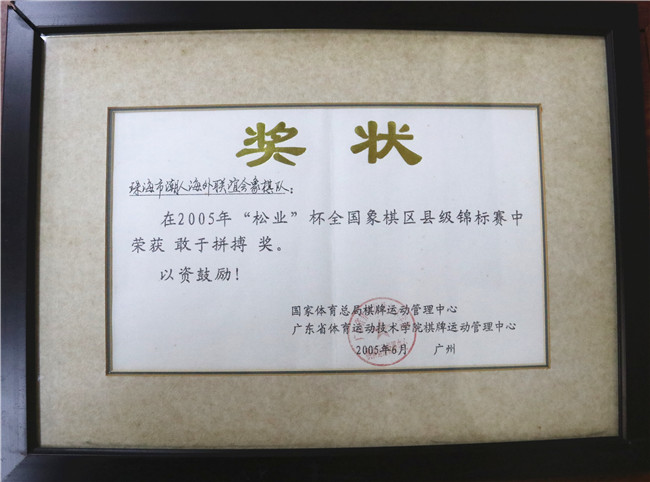 奖 状
珠海市潮人海外联谊会象棋队：
在2005年“松业”杯全国象棋区县级锦标赛中
荣获 敢于拼搏 奖。
以资鼓励！
国家体育总局棋牌运动管理中心
广东省体育运动技术学院棋牌运动管理中心
2005年6月 广州